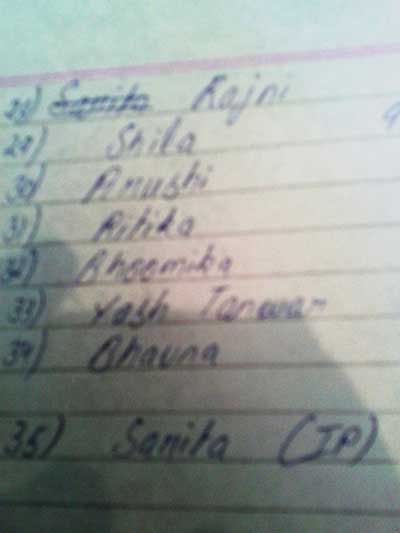 28) Sanita Rajni
29) Shila
30) Anushi
31) Ritika
32) Bhoomika
33) Yash Tanwar
34) Bhavna
35) Sanita (IP)